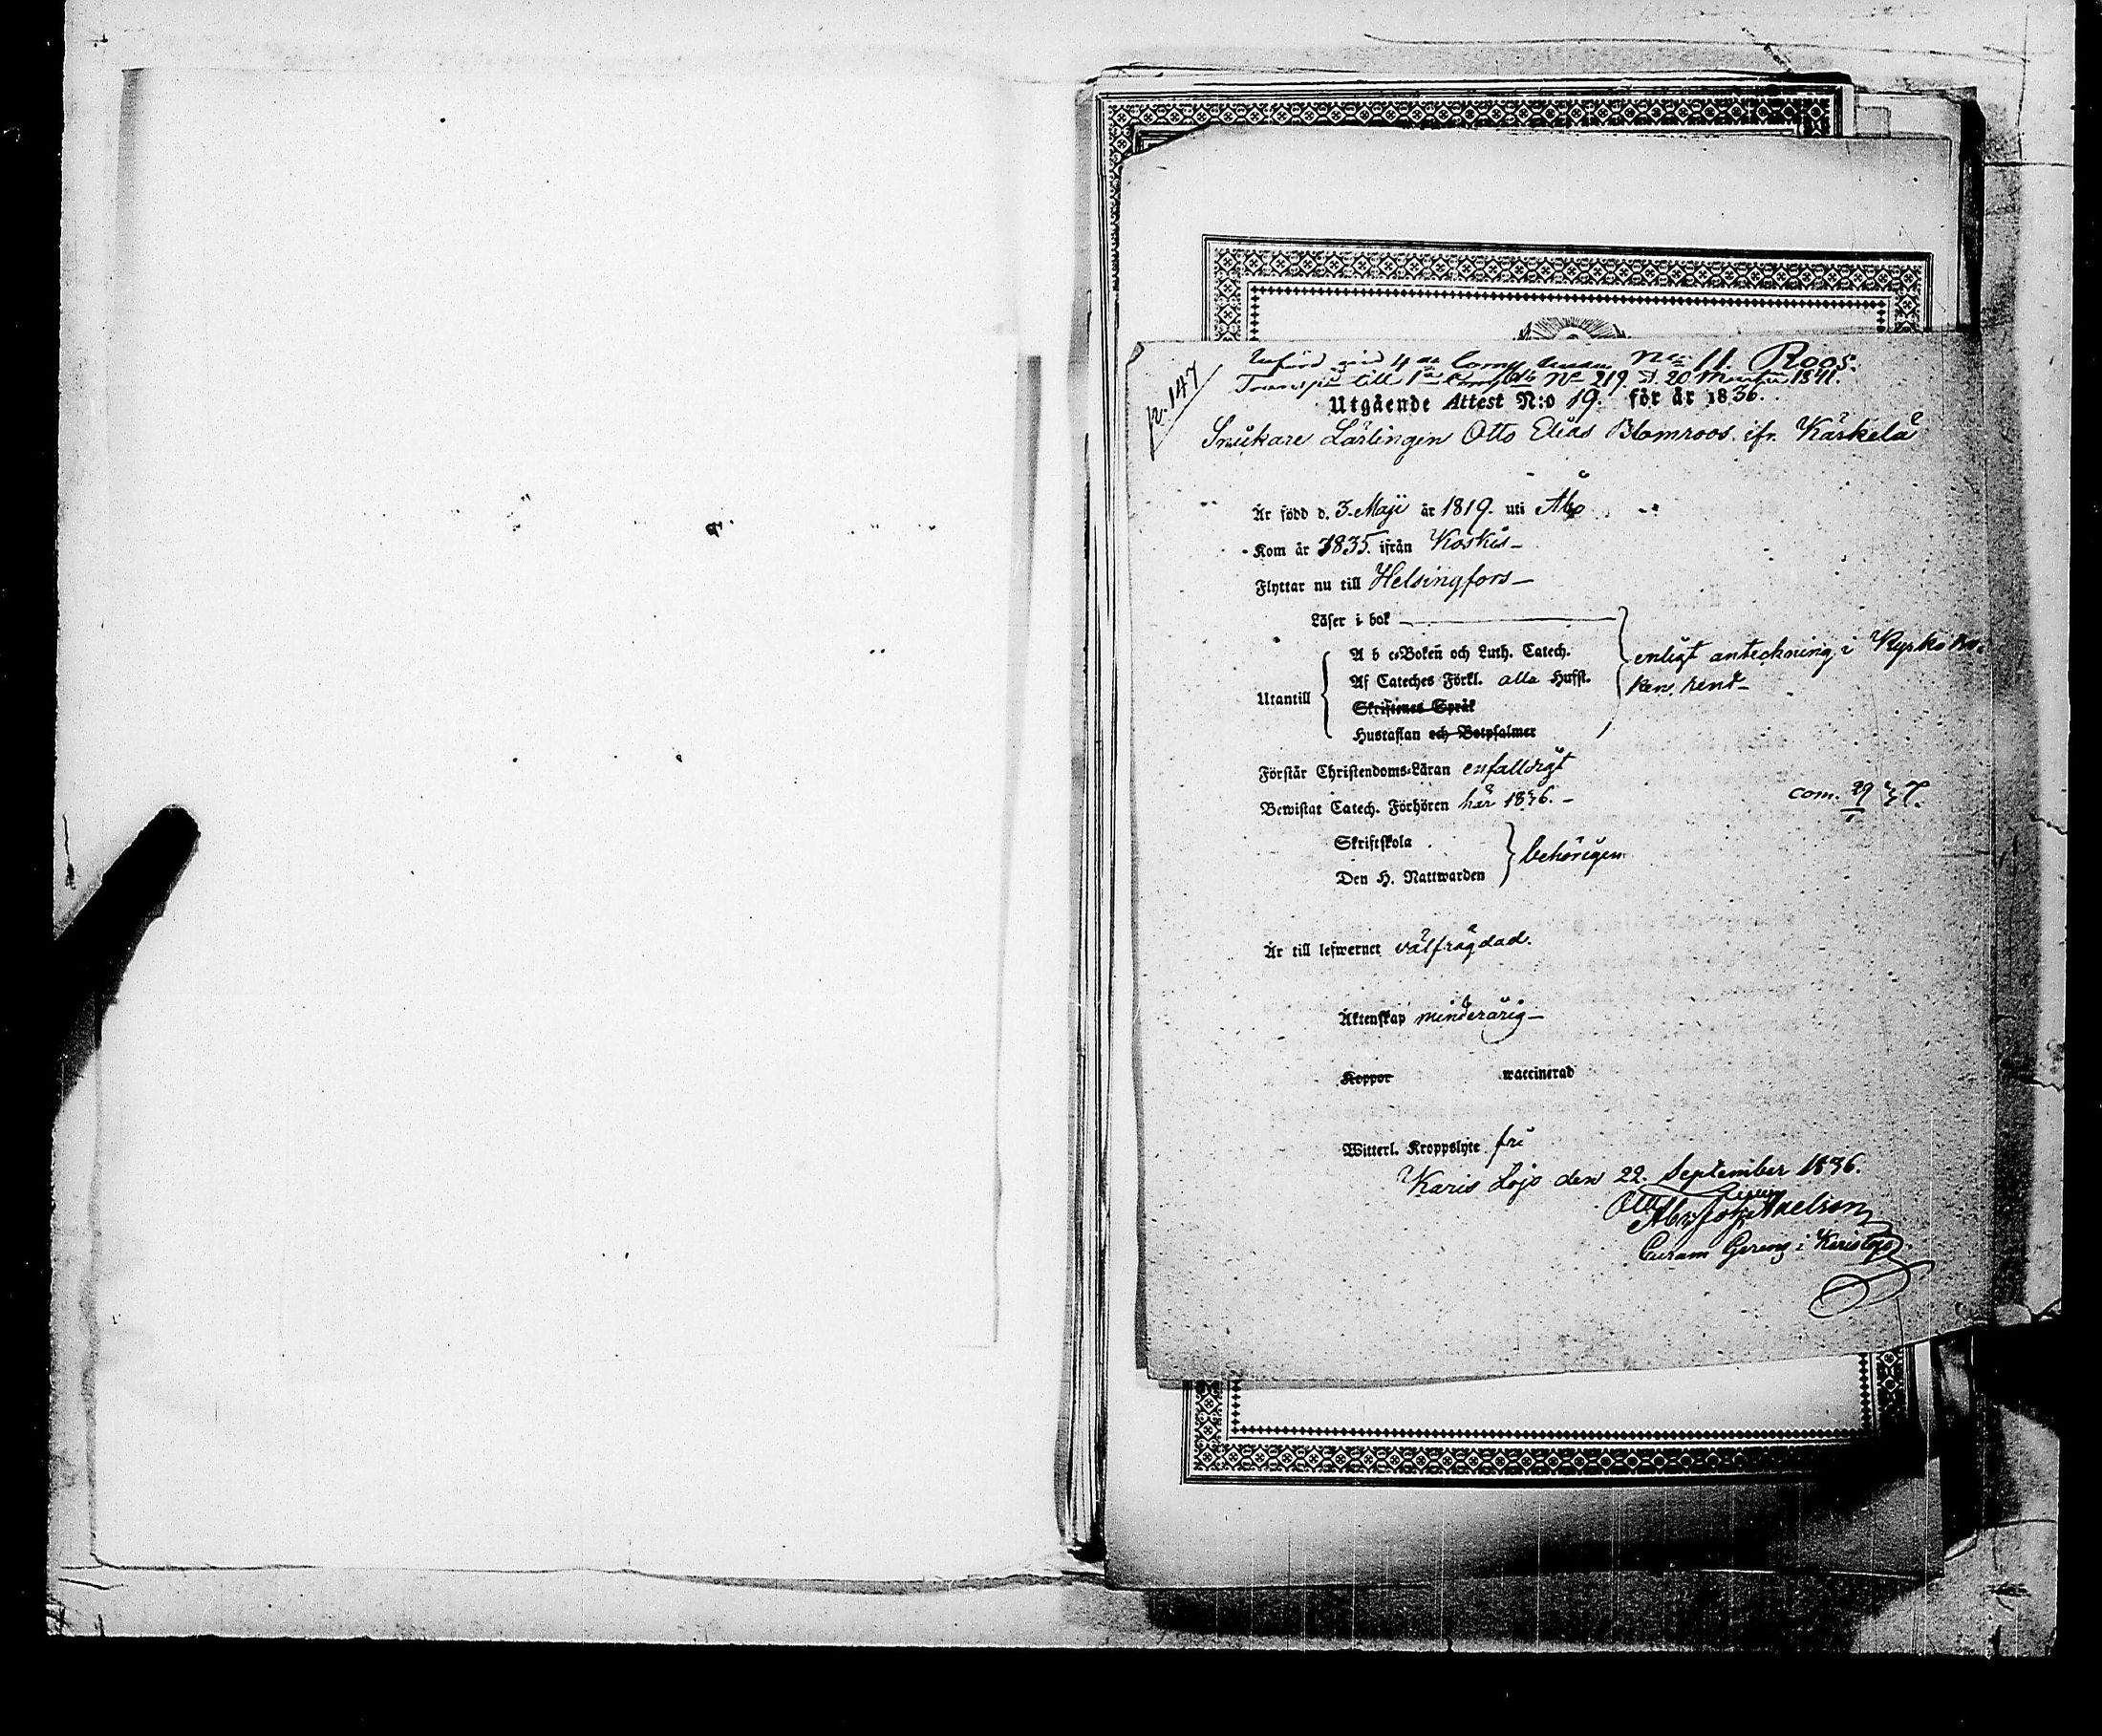 p. 147
Införd vid 4de Comp. under No 11. Roos.
Transp. till 1a Comp. No 219. d. 20 Martii 1841.
Utgående Attest N:o 19. för år 1836.
Snickare Lärlingen Otto Elias Blomroos ifr. Kärkelä
Är född d. 3. Maji år 1819. uti Åbo
Kom år 1835. ifrån Koskis
Flyttar nu till Helsingfors
Läser i bok
A b c-Boken och Luth. Catech.
Af Cateches Förkl. alla Hufst.
Utantill
Skriftenes Språk
Hustaflan och Botpsalmer
enligt anteckning i Kyrkobo-
ken, rent
Förstår Christendoms-Läran enfalldigt
Bewistat Catech. Förhören här 1836.
com. 29
Skriftskola
Den H. Nattwarden
behörigen
Är till lefwernet välfrägdad.
Äktenskap minderårig
Koppor waccinerad
Witterl. Kroppslyte fri
Karis Lojo den 22. September 1836.
Curam Gerens i Karislojo